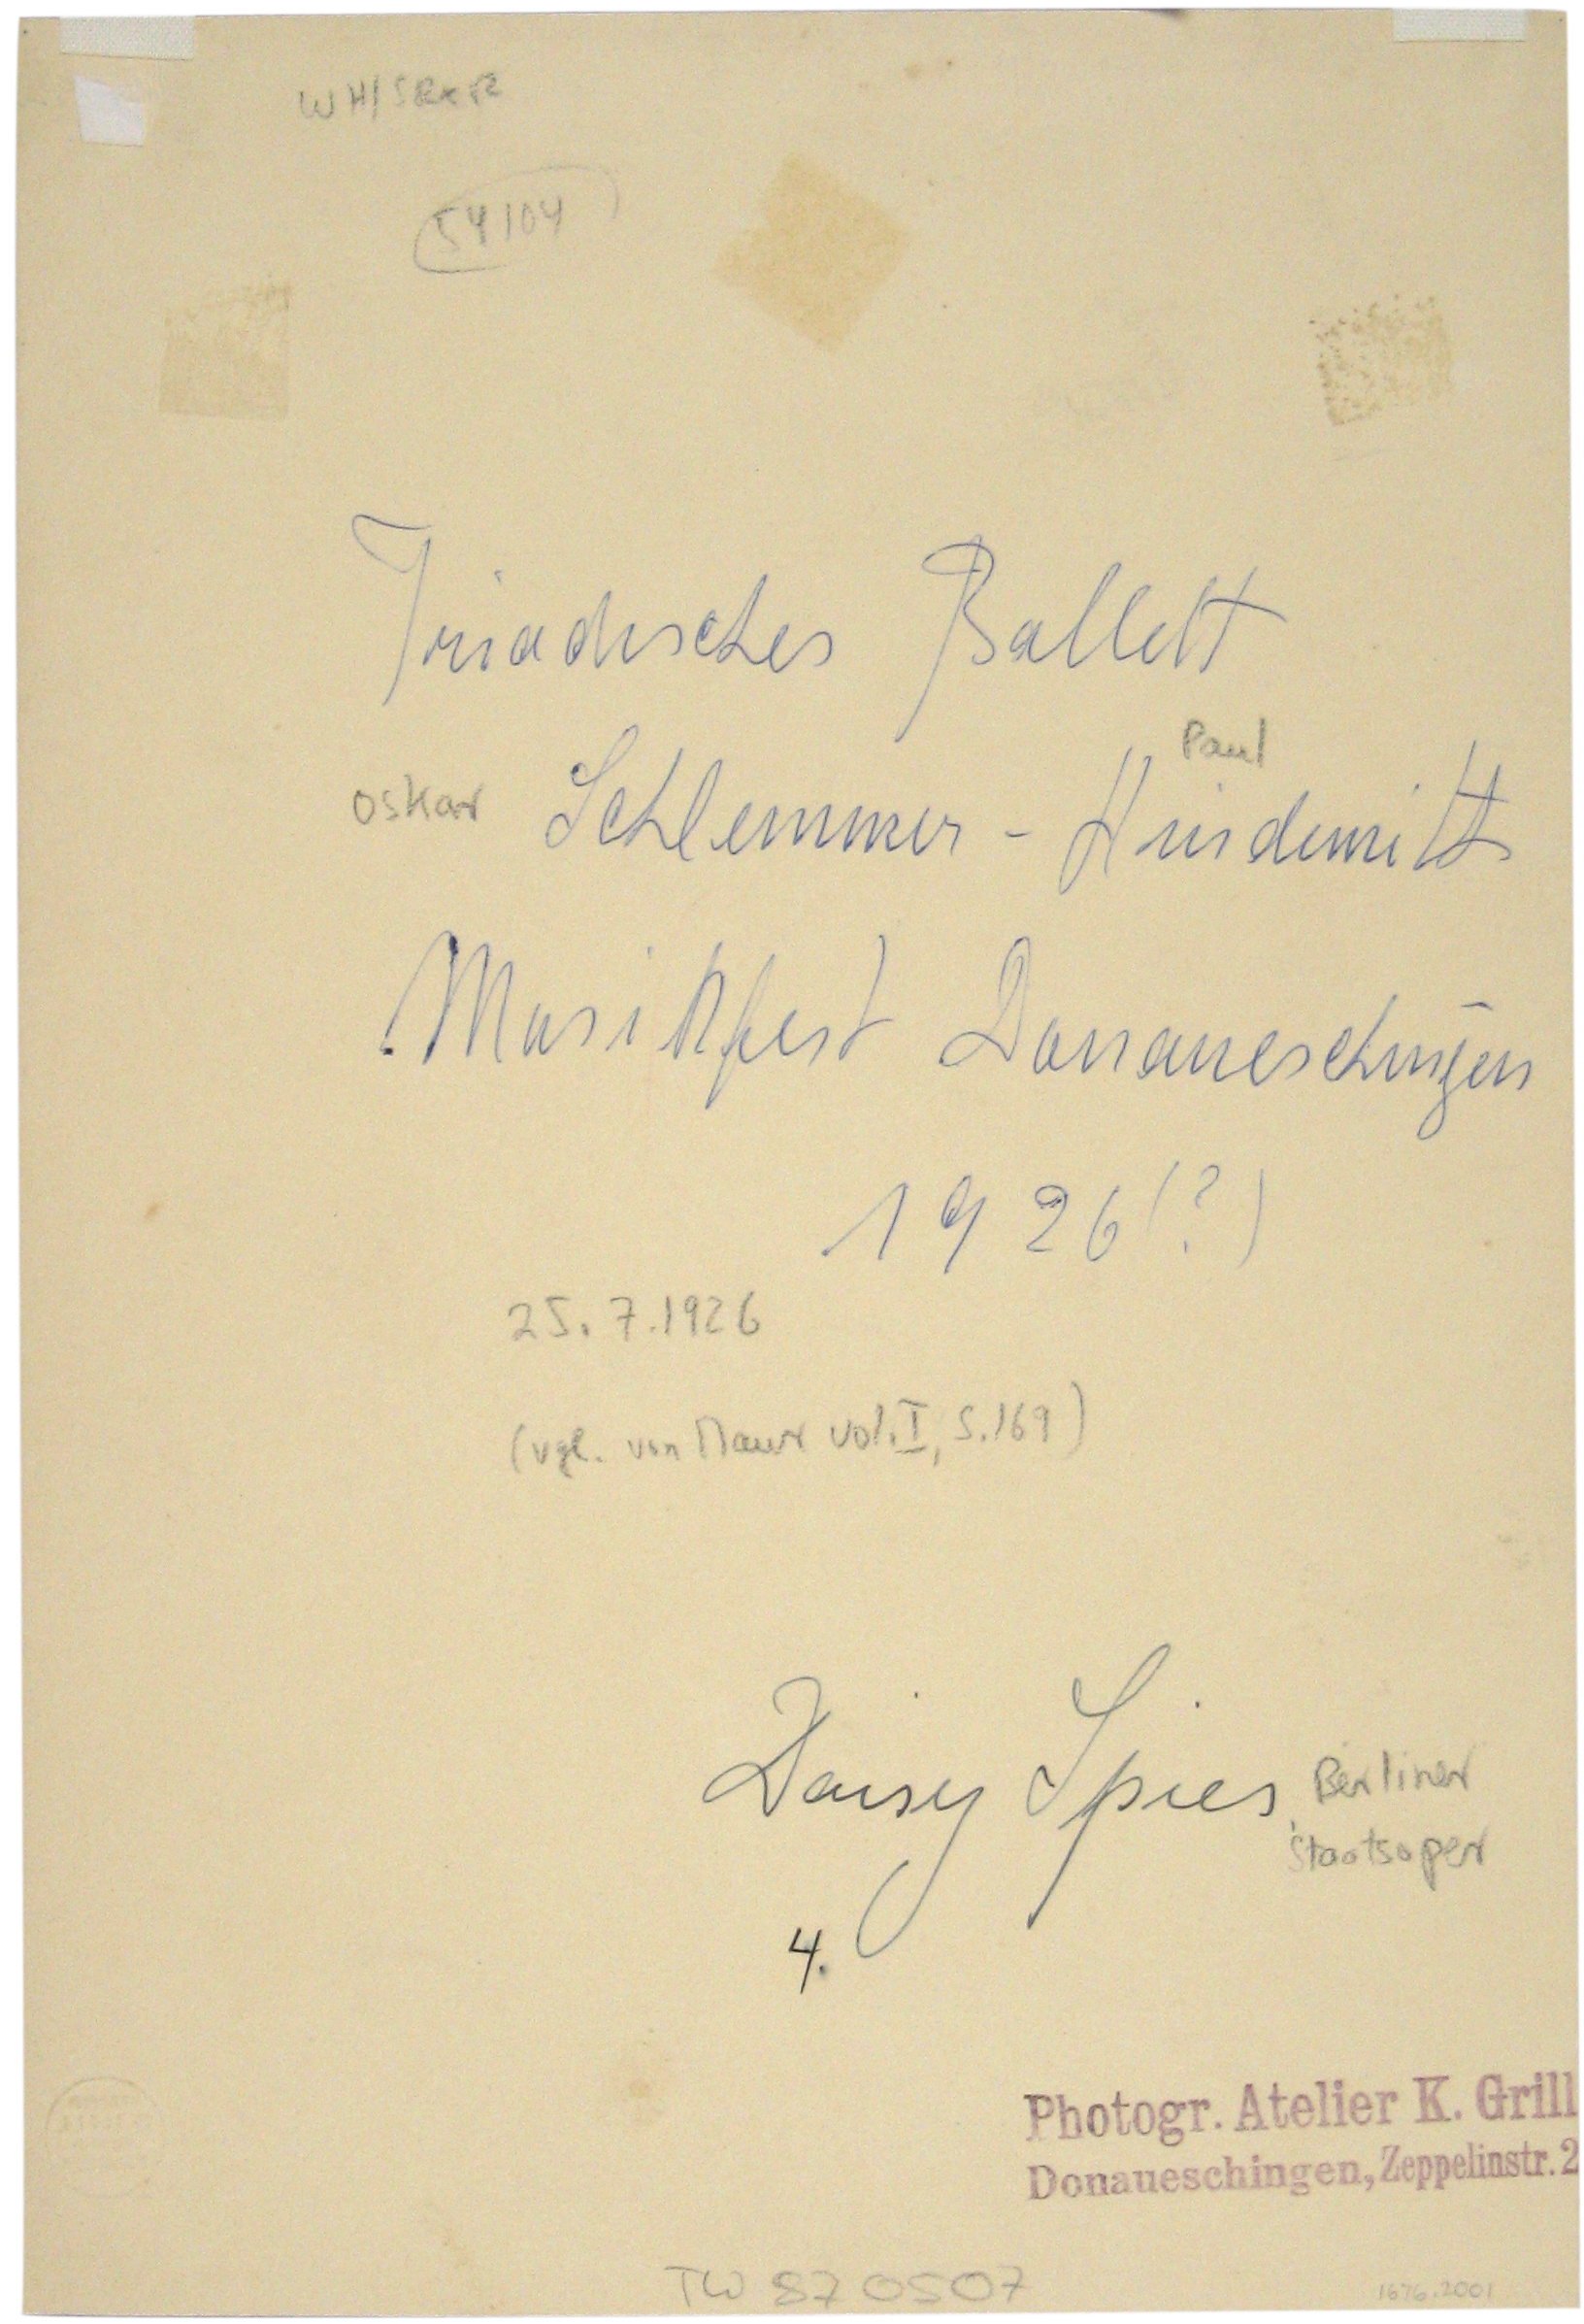 54104
Triadisches Ballett
Paul
Oskar Schlemmer - Hindemith
Musikfest Donaueschingen
1926 (?)
25.7.1926
(vgl. von Maur vol. I, S.169)
Daisy Spies Berliner
Staatsoper
4.
Photogr. Atelier K. Grill
Donaueschingen, Zeppelinstr. 2
TW 870507
1676.2001